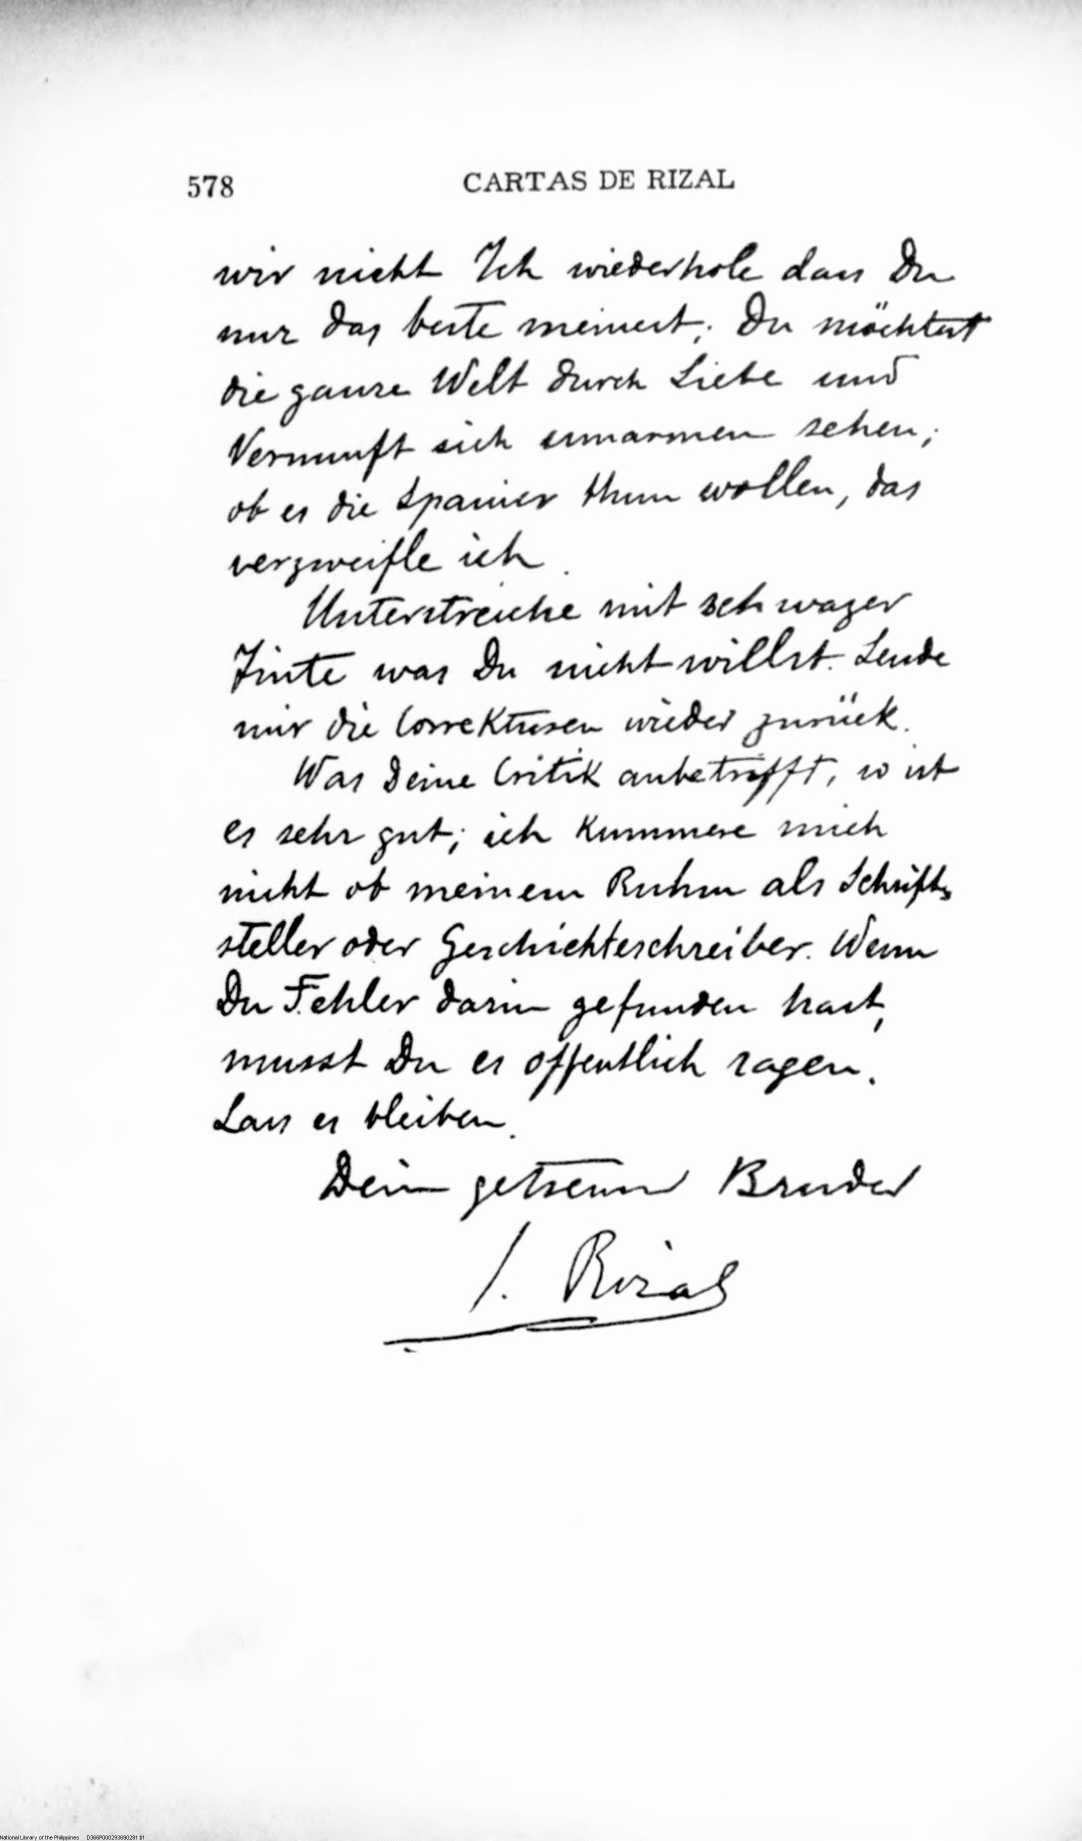 578 CARTAS DE RIZAL
wir nicht Ich wiederhole dass Du
nur das beste meinest; Du möchtest
die ganze Welt durch Liebe und
Vernunft sich umarmen sehen;
ob es die Spanier thun wollen, das
verzweifle ich.
Unterstreiche mit schwazer
Tinte was Du nicht willst. Sende
mir die Correkturen wieder zurück.
Was Deine Critik anbetrifft, so ist
es sehr gut; ich kummere mich
nicht ob meinem Ruhm als Schrift-
steller oder Geschichteschreiber. Wenn
Du Fehler darin gefunden hast,
musst Du es offentlich sagen.
Lass es bleiben.
Dein getreuer Bruder
J. Rizal
National Library of the Philippines